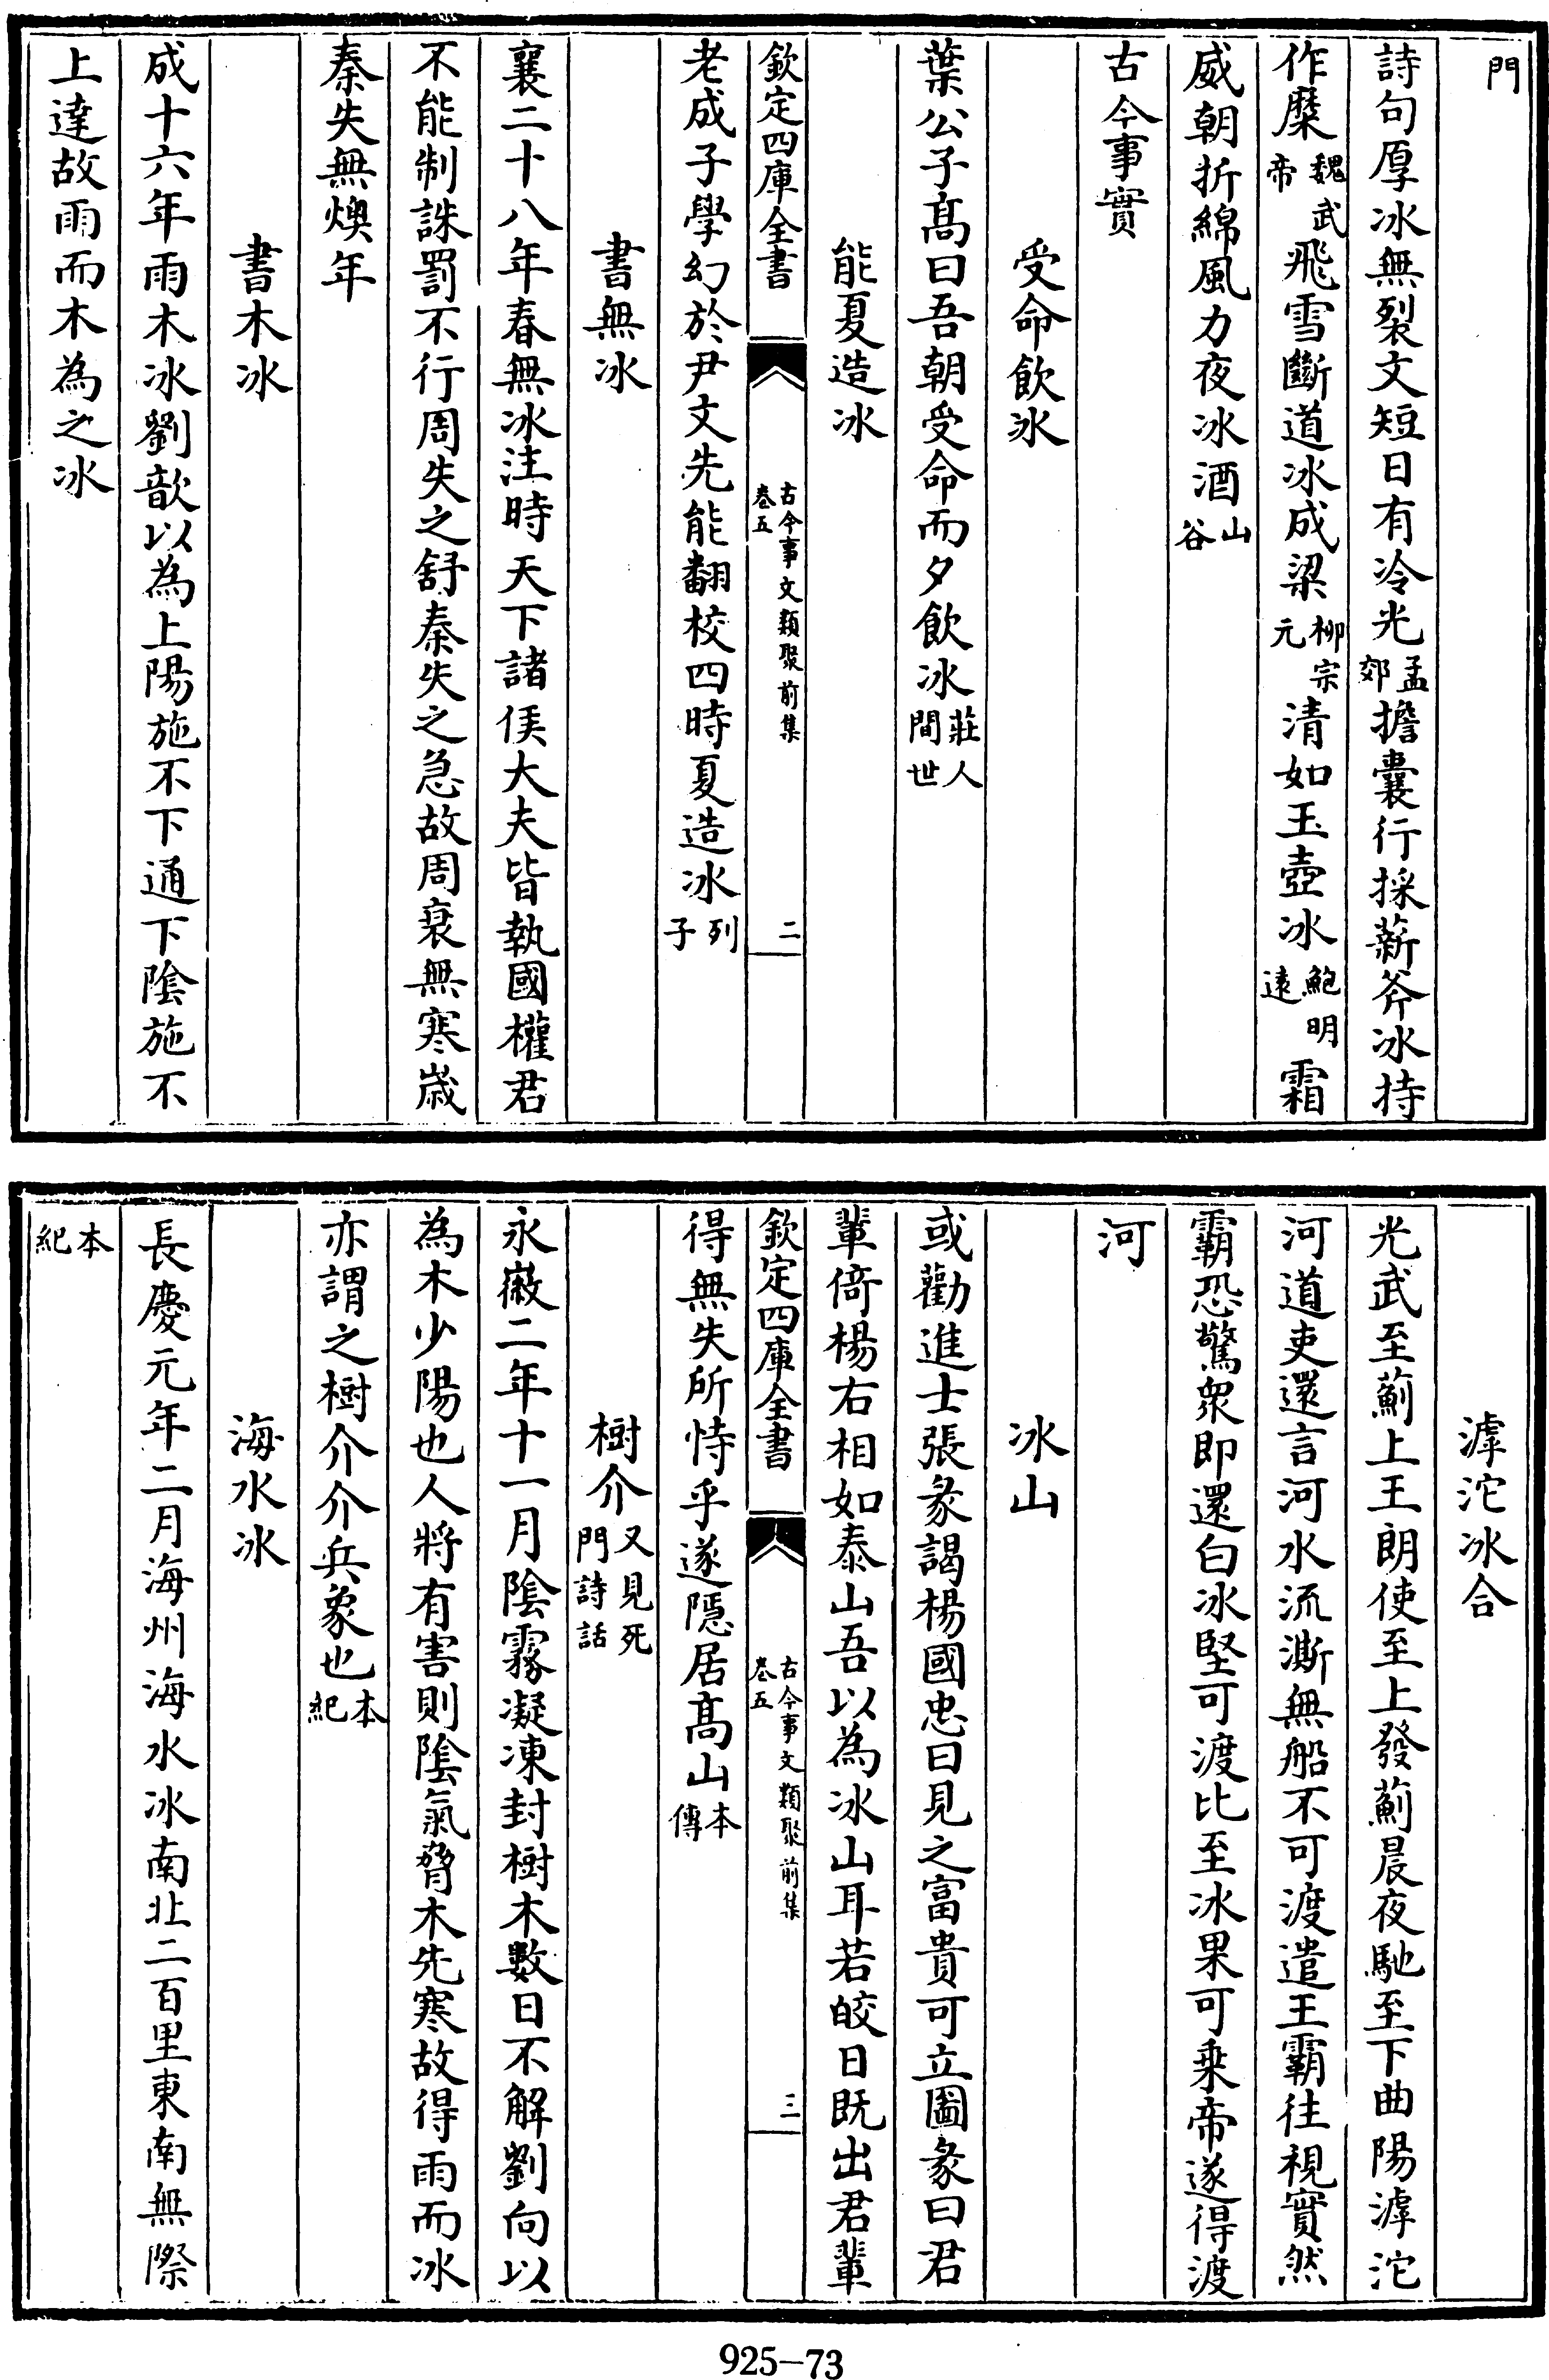 門
詩句厚冰無裂文短日有冷光孟郊擔囊行採薪斧冰持
作糜魏武帝飛雪斷道冰成梁柳宗元清如玉壺冰鮑明遠霜
威朝折綿風力夜冰酒山谷
古今事實
受命飲冰
葉公子髙曰吾朝受命而夕飲冰莊人間世
能夏造冰
欽定四庫全書
古今事文類聚前集
卷五
二
老成子學幻於尹文先能翻校四時夏造冰列子
書無冰
襄二十八年春無冰注時天下諸侯大夫皆執國權君
不能制誅罰不行周失之舒秦失之急故周衰無寒歲
秦失無燠年
書木冰
成十六年雨木冰劉歆以為上陽施不下通下陰施不
上達故雨而木為之冰
滹沱冰合
光武至薊上王朗使至上發薊晨夜馳至下曲陽滹沱
河道吏還言河水流澌無船不可渡遣王霸往視實然
霸恐驚衆即還白冰堅可渡比至冰果可乗帝遂得渡
河
冰山
或勸進士張彖謁楊國忠曰見之富貴可立圖彖曰君
輩倚楊右相如泰山吾以為冰山耳若皎日既出君輩
欽定四庫全書
古今事文類聚前集
卷五
三
得無失所恃乎遂隱居髙山本傳
樹介又見死門詩話
永徽二年十一月陰霧凝凍封樹木數日不解劉向以
為木少陽也人將有害則陰氣脅木先寒故得雨而冰
亦謂之樹介介兵象也本紀
海水冰
長慶元年二月海州海水冰南北二百里東南無際
本紀
925-73